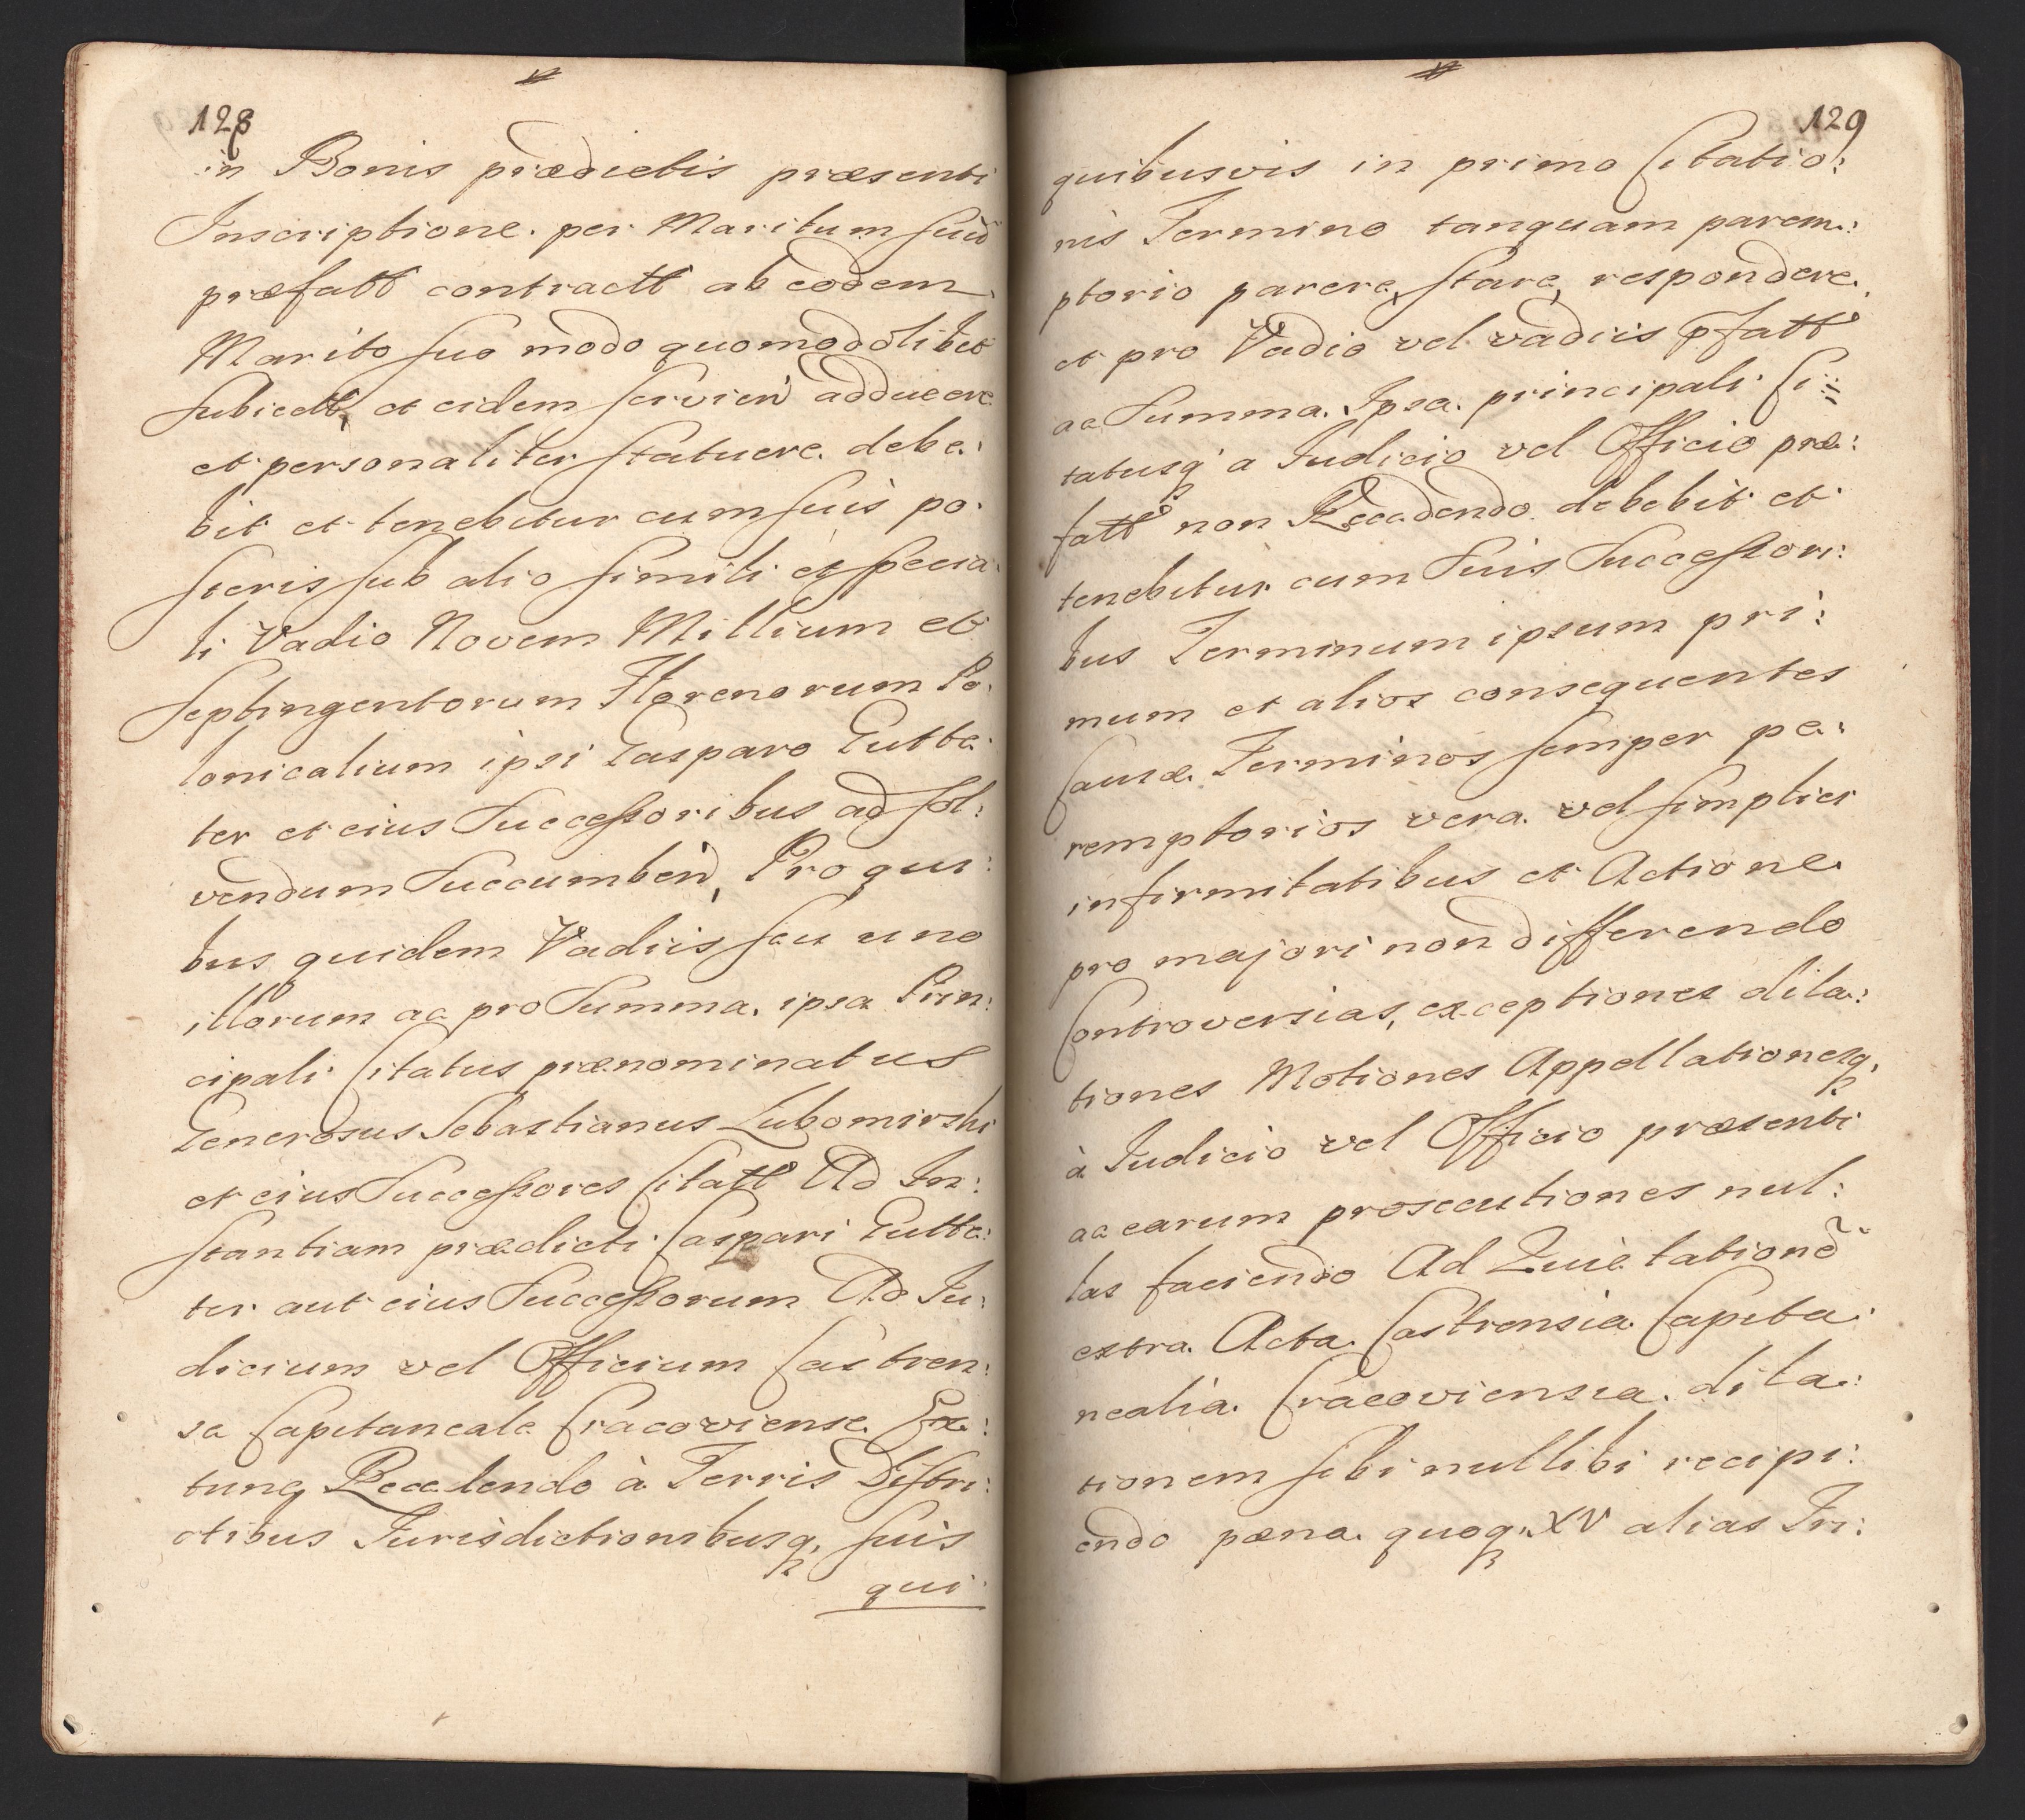 128
in Bonis prædictis præsenti
Inscriptione per Maritum suũ
præfatt contractt ab eodem
Marito suo modo quomodolibet
subiectt, et eidem servien̄ adducere
et personaliter statuere debe:
bit et tenebitur cum suis po:
steris sub alio simili et specia:
li Vadio Novem Millium et
septingentorum Florenorum Po:
lonicalium ipsi Gasparo Gutte:
ter et eius Successoribus ad sol:
vendum Succumben̄, Pro qui:
bus quidem Vadiis seu uno
illorum ac pro Summa ipsa Prin:
cipali Citatus prænominatus
Generosus Sebastianus Lubomirski
et eius Successores Citatt Ad In:
stantiam prædicti Caspari Gutte:
ter aut eius Successorum Ad Iu:
dicium vel Officium Castren:
se Capitaneale Cracoviense Ex:
tunq Recedendo à Terris Distri:
ctibus Iurisdictionibusq, suis
qui
129
quibusvis in primo Citatio:
nis Termino tanquam parem:
ptorio parere, stare, respondere,
et pro Vadio vel vadiis p̄fatt
ac Summa Ipsa principali Ci:
tatusq a Iudicio vel Officio præ:
fatt non Recedendo debebit et
tenebitur cum Suis Successori:
bus Terminum ipsum pri:
mum et alios consequentes
Causæ Terminos semper pe:
remptorios vera vel simplici
infirmitatibus et Actione
pro majori non differendo
Controversias, exceptiones dila:
tiones Motiones Appellationesq,
à Iudicio vel Officio præsenti
ac earum prosecutiones nul:
las faciendo Ad Quietationẽ
extra Acta Castrensia Capita:
nealia Cracoviensia dila:
tionem sibi nullibi recipi:
endo pæna quoq, XV alias Tri: